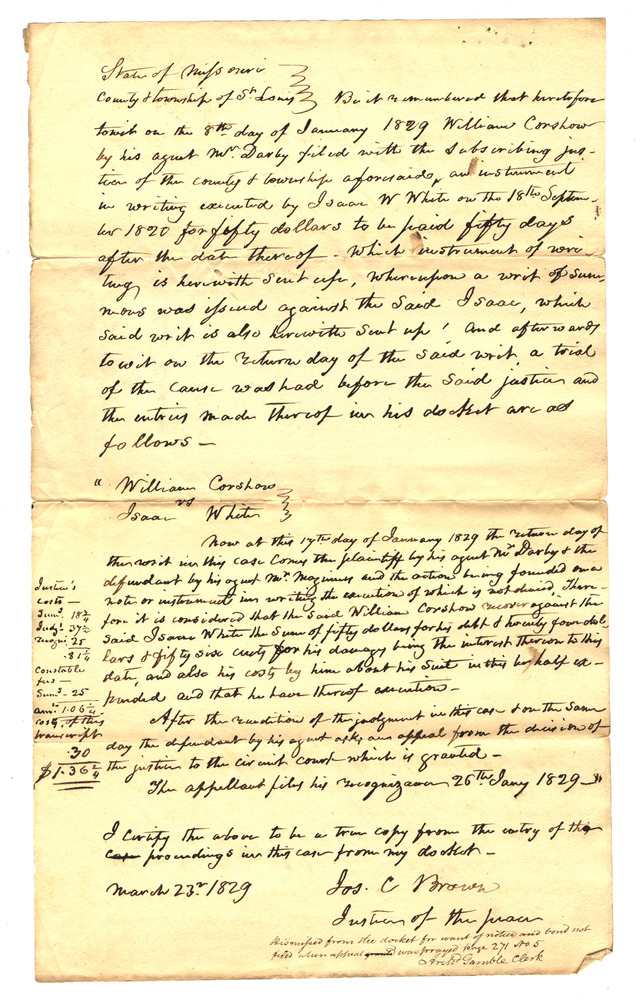 State of Missouri
County & township of St. Louis } Be it remembered that heretofore
towit on the 8th day of January 1829 William Corshow
by his agent Mr. Darby filed with the subscribing jus-
tice of the county & township aforesaid, an instrument
in writing executed by Isaac W White on the 18th Septem-
ber 1820 for fifty dollars to be paid fifty days
after the date thereof - which instrument of wri
ting is herewith sent up, whereupon a writ of sum-
mons was issued against the said Isaac, which
said writ is also herewith sent up! And afterwards
towit on the return day of the said writ a trial
of the cause was had before the said justice and
the entries made thereof in his docket are as
follows —
" William Corshow
vs
Isaac White
Now at this 17th day of January 1829 the return day of
the writ in this case comes the plaintiff by his agent Mr Darby & the
defendant by his agent Mr. Maginnis and the action being founded on a
note or instrument in writing the execution of which is not denied. There-
fore it is considered that the said William Corshow recover against the
said Isaac White the sum of fifty dollars for his debt & twenty four dol-
lars & fifty six cents for his damages being the interest thereon to this
date, and also his costs by him about his suit in this behalf ex-
pended and that he have thereof execution —
After the rendition of the judgment in this case & on the same
day the defendant by his agent asks an appeal from the decision of
the justice to the circuit court which is granted —
The appellant files his recognizance 26th Jany 1829 — "
Justice's
costs —
Sums. 18 3/4
Judgt. 37 1/2
recogni. 25
.81 1/4
Constable
fees —
Sums. 25
amt. 1.06 1/4
cost of this
transcript
.30
$1.36 1/4
I certify the above to be a true copy from the entry of the
proceedings in this case from my docket —
March 23r 1829 Jos. C Brown
Justice of the peace
Dismissed from the docket for want of notice and bond not
filed when appeal was prayed page 271 No. 5
Archd Gamble Clerk